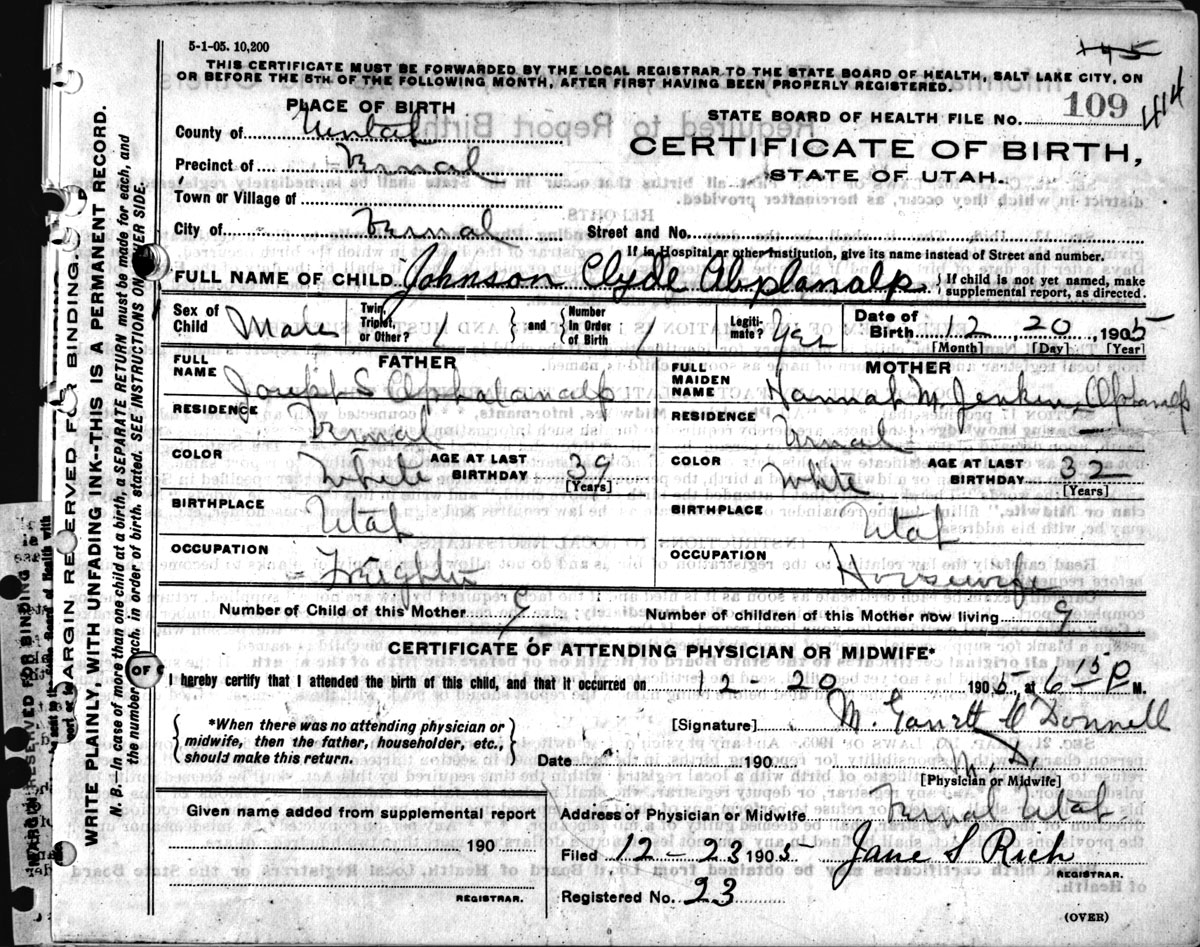 5-1-05. 10,200
145
THIS CERTIFICATE MUST BE FORWARDED BY THE LOCAL REGISTRAR TO THE STATE BOARD OF HEALTH, SALT LAKE CITY, ON
OR BEFORE THE 5TH OF THE FOLLOWING MONTH, AFTER FIRST HAVING BEEN PROPERLY REGISTERED.
PLACE OF BIRTH
STATE BOARD OF HEALTH FILE NO. 109 444
County of Uintah
CERTIFICATE OF BIRTH,
Precinct of Vernal
STATE OF UTAH.
Town or Village of
City of Vernal Street and No.
If in Hospital or other Institution, give its name instead of Street and number.
FULL NAME OF CHILD Johnson Clyde Abplanalp { If child is not yet named, make
supplemental report, as directed.
Sex of Child Male Twin, Triplet, or Other? 1 } and { Number In Order of Birth 1 Legiti- mate? Yes Date of Birth 12 20 1905
[Month] [Day] [Year]
FATHER MOTHER
FULL NAME Joseph S Alphalanalp FULL MAIDEN NAME Hannah M Jenkins Abplanalp
RESIDENCE Vernal RESIDENCE Vernal
COLOR White AGE AT LAST BIRTHDAY 39 [Years] COLOR White AGE AT LAST BIRTHDAY 32 [Years]
BIRTHPLACE Utah BIRTHPLACE Utah
OCCUPATION Freighter OCCUPATION Housewife
Number of Child of this Mother 9 Number of children of this Mother now living 9
CERTIFICATE OF ATTENDING PHYSICIAN OR MIDWIFE*
I hereby certify that I attended the birth of this child, and that it occurred on 12 - 20 1905, at 6 15 P M.
{ *When there was no attending physician or
midwife, then the father, householder, etc.,
should make this return. }
[Signature] M. Garrett O'Donnell
Date 190 M.D.
[Physician or Midwife]
Given name added from supplemental report
190
REGISTRAR.
Address of Physician or Midwife Vernal Utah
Filed 12 - 23 1905 Jane S Rich
REGISTRAR.
Registered No. 23
(OVER)
MARGIN RESERVED FOR BINDING.
WRITE PLAINLY, WITH UNFADING INK--THIS IS A PERMANENT RECORD.
N. B.--In case of more than one child at a birth, a SEPARATE RETURN must be made for each, and
the number of each, in order of birth, stated. SEE INSTRUCTIONS ON OTHER SIDE.
OF
MARGIN RESERVED FOR BINDING